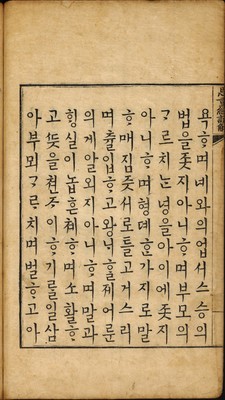 욕ᄒᆞ며네와의업서스승의
법을좃지아니ᄒᆞ며부모의
ᄀᆞᄅᆞ치ᄂᆞᆫ녕을아이에좃지
아니ᄒᆞ며형뎨ᄒᆞᆫ가지로말
ᄒᆞ매짐즛서로틀고거스리
며츌입ᄒᆞ고왕ᄂᆡᄒᆞᆯ제어룬
의게알외지아니ᄒᆞ며말과
ᄒᆡᆼ실이놉흔톄ᄒᆞ며소활ᄒᆞ
고ᄯᅳᆺ을쳔ᄌᆞ이ᄒᆞ기ᄅᆞᆯ일삼
아부뫼ᄀᆞᄅᆞ치며벌ᄒᆞ고아